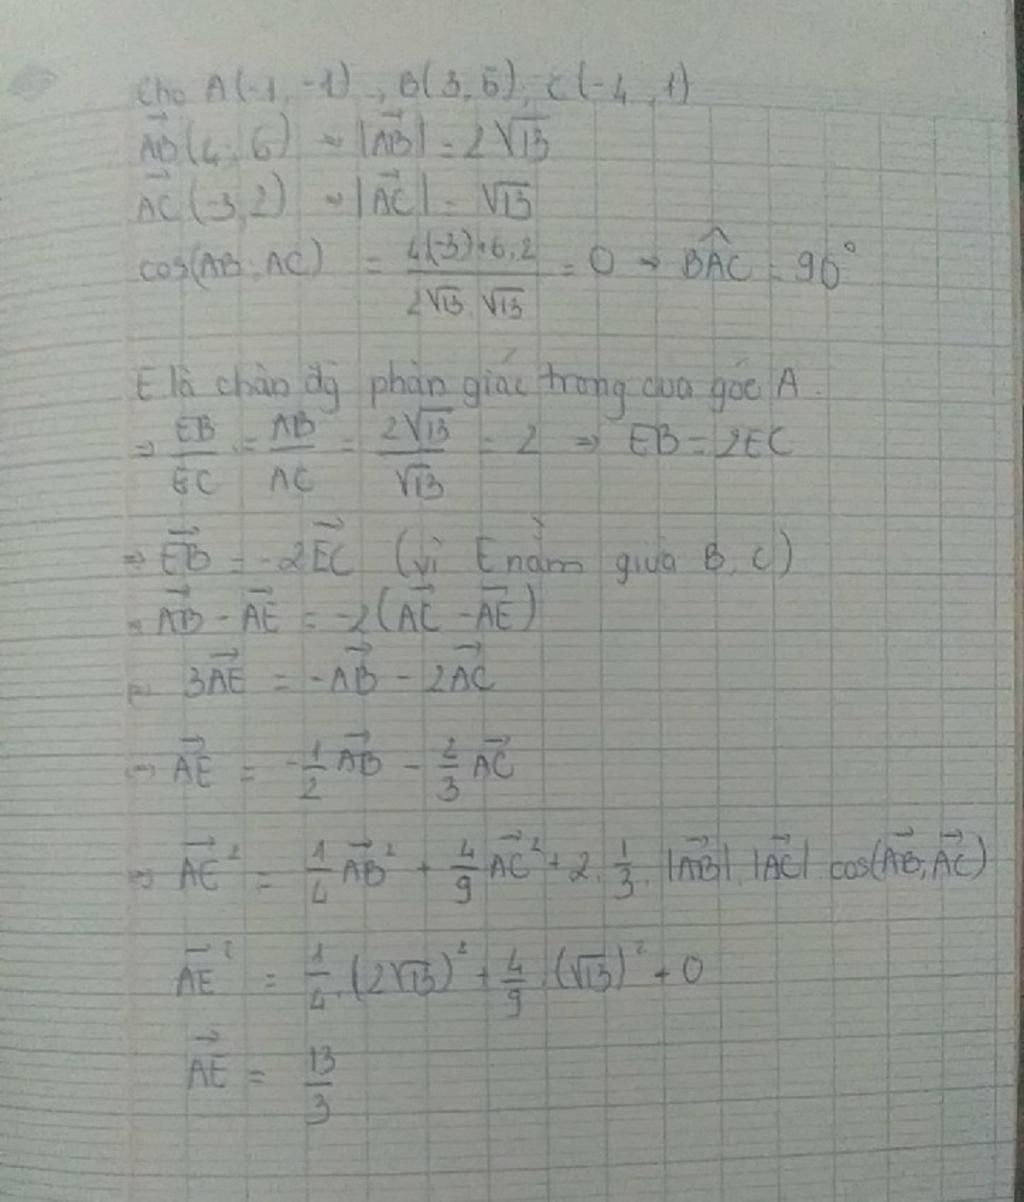 Cho A(-1, -1), B(3, 5), C(-4, 1)
AB(4, 6) → |AB| = 2√13
AC(-3, 2) → |AC| = √13
cos(AB, AC) = (4(-3)+6.2)/(2√13.√13) = 0 → BAC = 90°
E là chân đg phân giác trong của góc A.
⇒ EB/EC = AB/AC = 2√13/√13 = 2 ⇒ EB = 2EC
⇒ EB = -2EC (vì E nằm giữa B, C)
⇒ AB - AE = -2(AC - AE)
⇒ 3AE = -AB - 2AC
⇒ AE = -1/2 AB - 2/3 AC
⇒ AE² = 1/4 AB² + 4/9 AC² + 2.1/3.|AB|.|AC| cos(AB, AC)
AE² = 1/4.(2√13)² + 4/9.(√13)² + 0
AE = 13/3